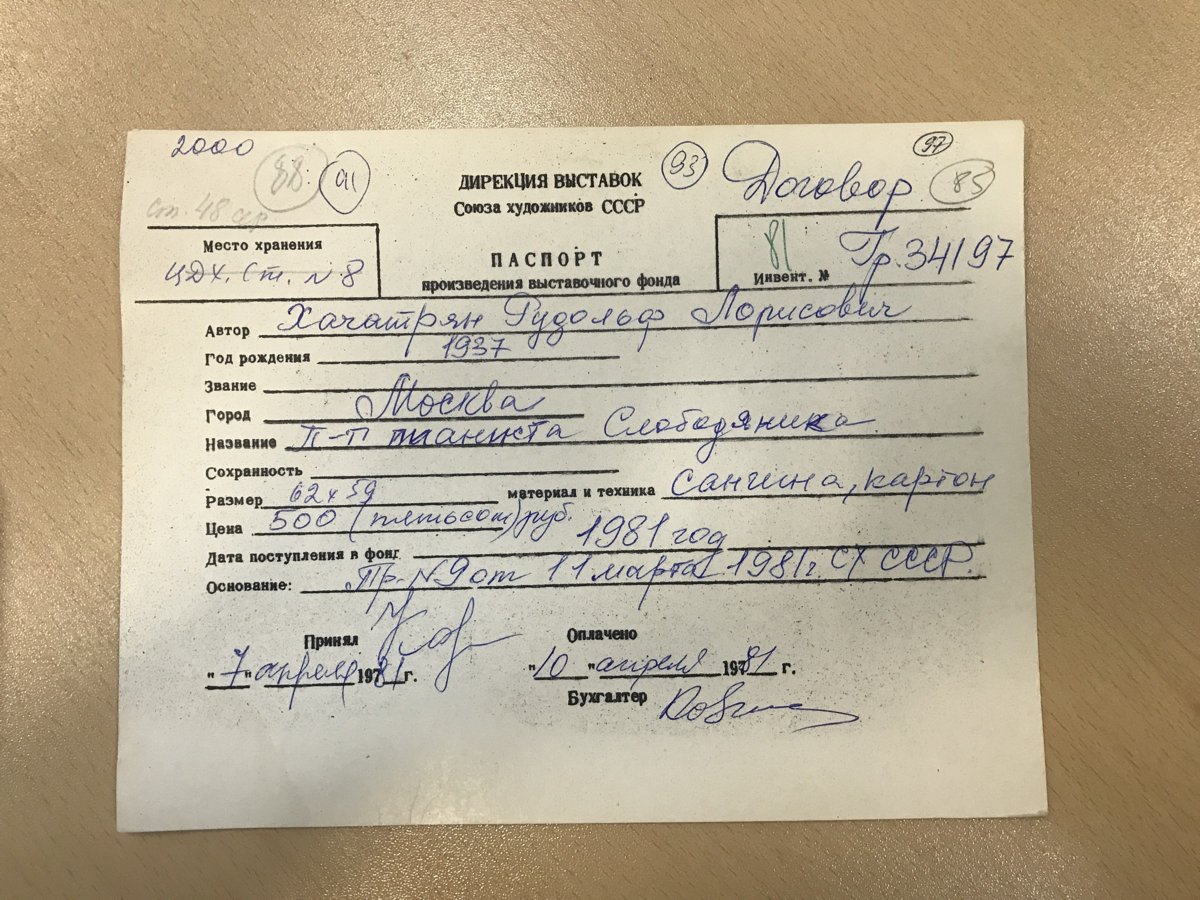 2000
88
91
93
97
Договор
85
ДИРЕКЦИЯ ВЫСТАВОК
Союза художников СССР
ст. 48
Место хранения
ЦДХ. Ст. № 8
ПАСПОРТ
произведения выставочного фонда
81
Инвент. № Гр. 34197
Автор Хачатрян Рудольф Лорисович
Год рождения 1937
Звание
Город Москва
Название П-т пианиста Слободяника
Сохранность
Размер 62 x 59 материал и техника Сангина, картон
Цена 500 (пятьсот) руб.
Дата поступления в фонд 1981 год
Основание: Пр. №9 от 11 марта 1981 г. СХ СССР.
Принял Оплачено
"7" апреля 1981 г. "10" апреля 1981 г.
Бухгалтер